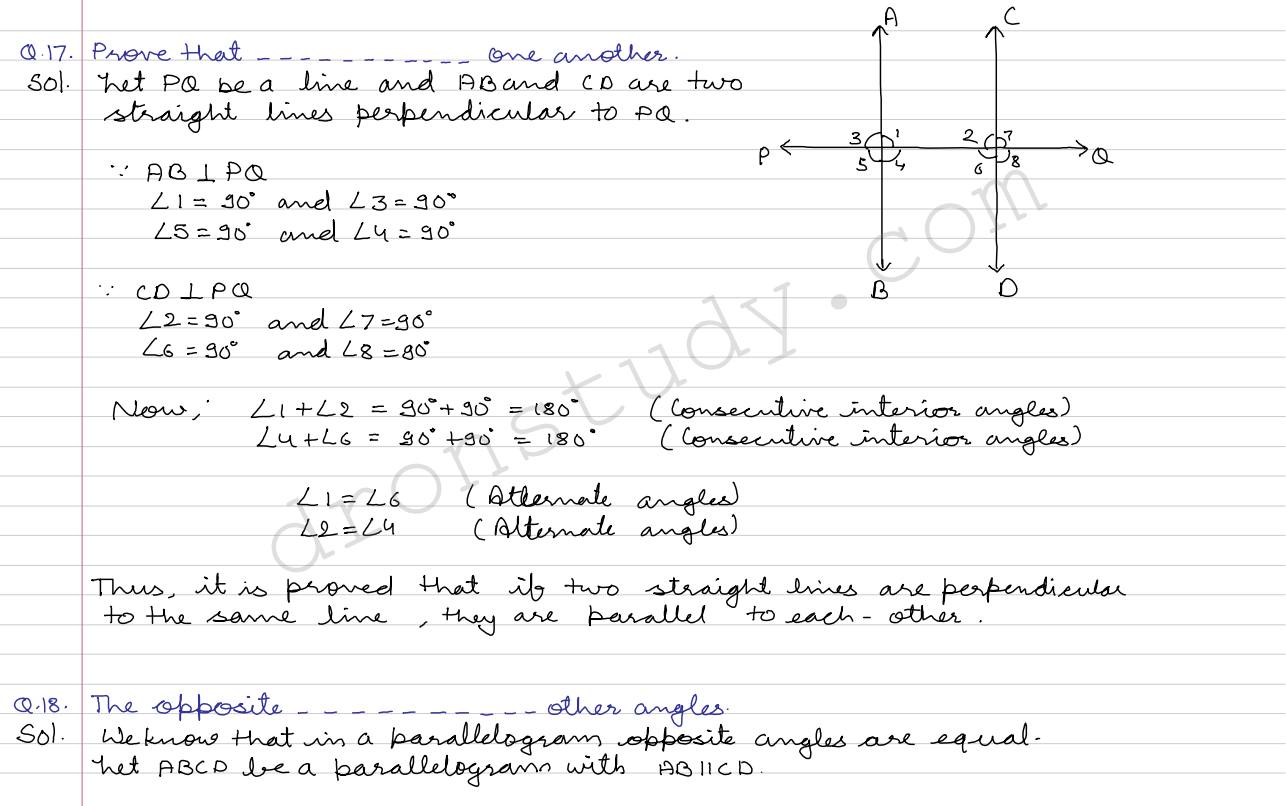 Q.17. Prove that ----------- one another.
Sol. Let PQ be a line and AB and CD are two
straight lines perpendicular to PQ.
A
C
3 1
2 7
P
5 4
6 8
Q
B
D
∵ AB ⊥ PQ
∠1 = 90° and ∠3 = 90°
∠5 = 90° and ∠4 = 90°
∵ CD ⊥ PQ
∠2 = 90° and ∠7 = 90°
∠6 = 90° and ∠8 = 90°
Now, ∠1 + ∠2 = 90° + 90° = 180° (Consecutive interior angles)
∠4 + ∠6 = 90° + 90° = 180° (Consecutive interior angles)
∠1 = ∠6 (Alternate angles)
∠2 = ∠4 (Alternate angles)
Thus, it is proved that if two straight lines are perpendicular
to the same line, they are parallel to each-other.
Q.18. The opposite ----------- other angles.
Sol. We know that in a parallelogram opposite angles are equal.
Let ABCD be a parallelogram with AB||CD.
dronstudy.com